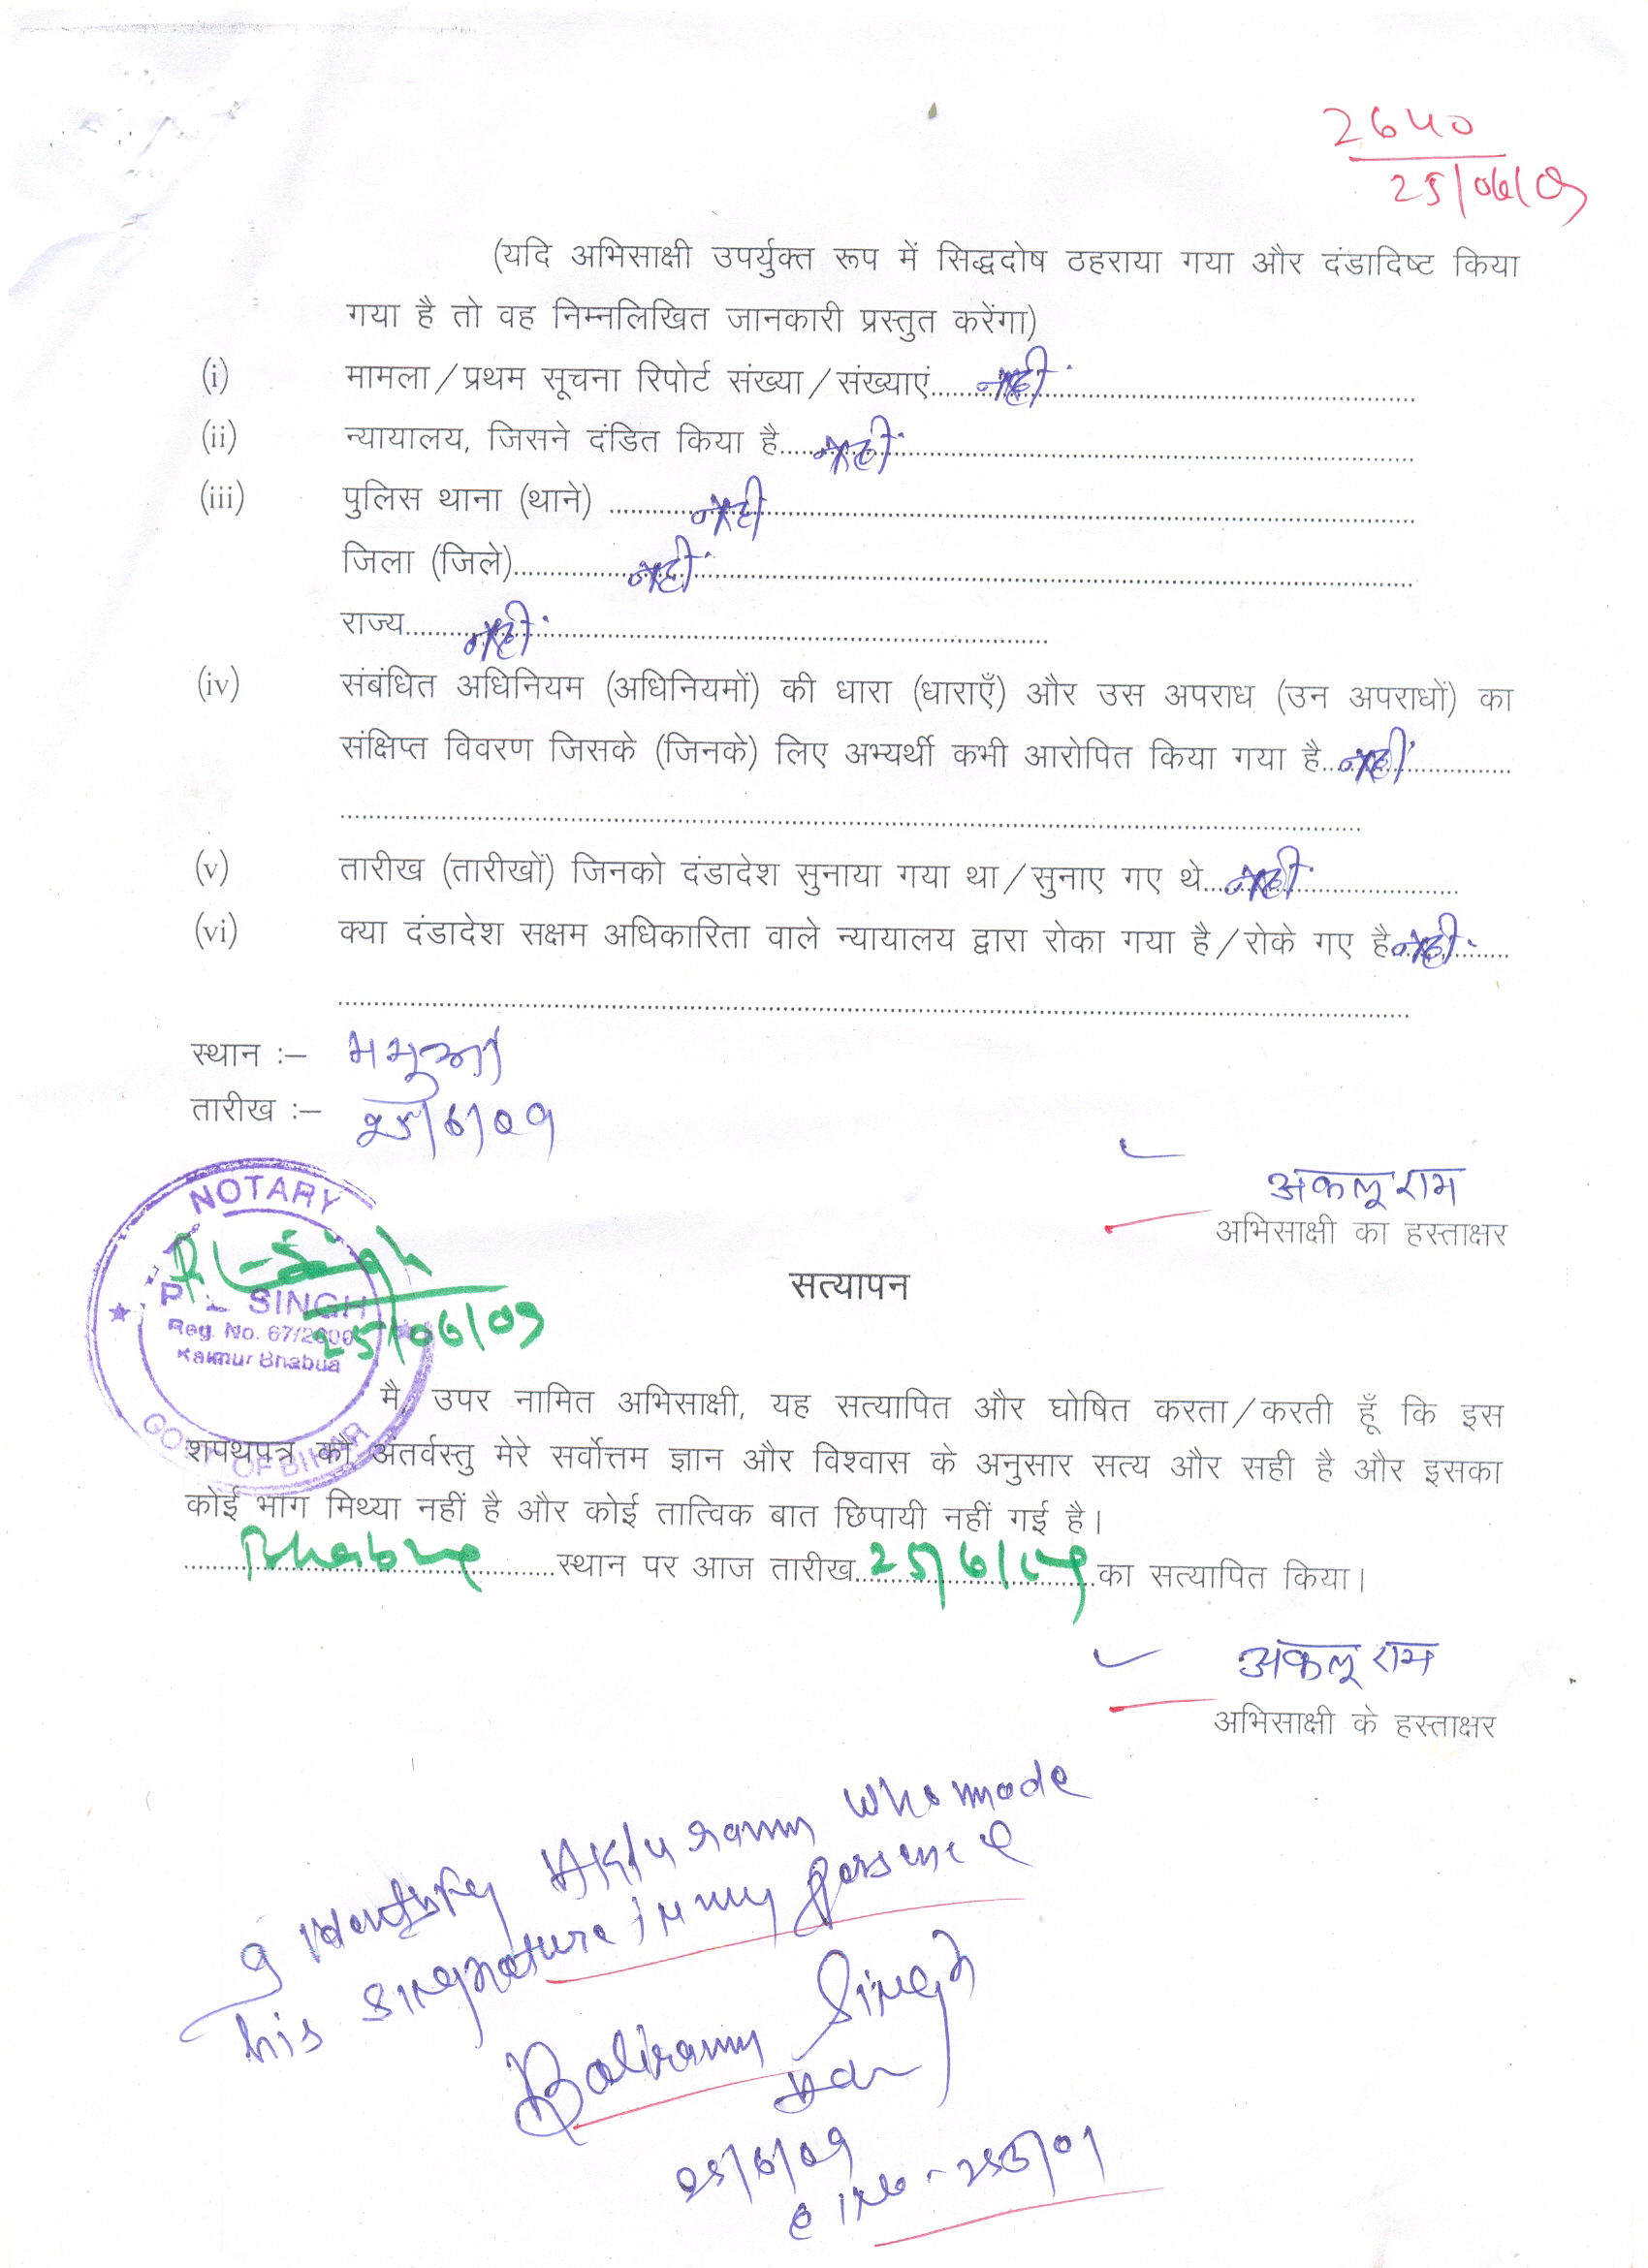 2640
25/06/09
(यदि अभिसाक्षी उपर्युक्त रूप में सिद्धदोष ठहराया गया और दंडादिष्ट किया
गया है तो वह निम्नलिखित जानकारी प्रस्तुत करेंगा)
(i) मामला/प्रथम सूचना रिपोर्ट संख्या/संख्याएं.....नहीं
(ii) न्यायालय, जिसने दंडित किया है.....नहीं
(iii) पुलिस थाना (थाने) .....नहीं
जिला (जिले).....नहीं
राज्य.....नहीं
(iv) संबंधित अधिनियम (अधिनियमों) की धारा (धाराएँ) और उस अपराध (उन अपराधों) का
संक्षिप्त विवरण जिसके (जिनके) लिए अभ्यर्थी कभी आरोपित किया गया है...नहीं
(v) तारीख (तारीखों) जिनको दंडादेश सुनाया गया था/सुनाए गए थे...नहीं
(vi) क्या दंडादेश सक्षम अधिकारिता वाले न्यायालय द्वारा रोका गया है/रोके गए है नहीं
स्थान :– भभुआ
तारीख :– 25/6/09
अकलू राम
अभिसाक्षी का हस्ताक्षर
NOTARY
P. L. SINGH
Reg. No. 67/2000
Kaimur Bhabua
GOVT OF BIHAR
25/06/09
सत्यापन
मै, उपर नामित अभिसाक्षी, यह सत्यापित और घोषित करता/करती हूँ कि इस
शपथपत्र की अंतर्वस्तु मेरे सर्वोत्तम ज्ञान और विश्वास के अनुसार सत्य और सही है और इसका
कोई भाग मिथ्या नहीं है और कोई तात्विक बात छिपायी नहीं गई है।
Bhabua स्थान पर आज तारीख 25/6/09 का सत्यापित किया।
अकलू राम
अभिसाक्षी के हस्ताक्षर
I identify Aklu Ram who made
his singnature in my persence
Baliram Singh
Adv
25/6/09